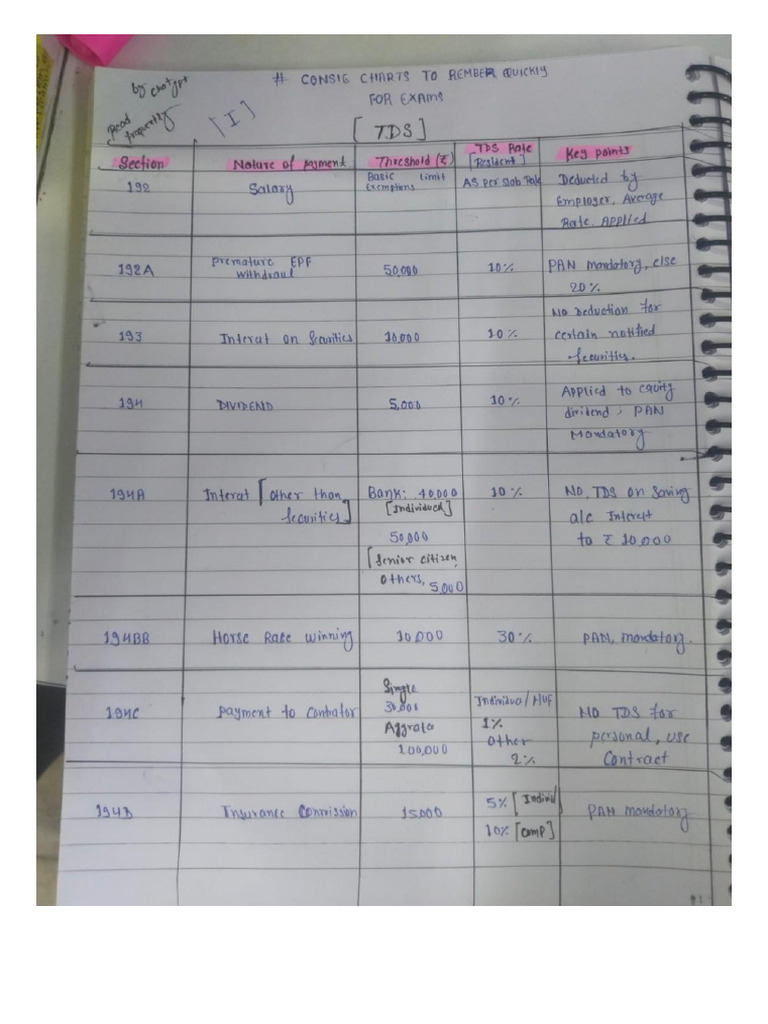 # CONSIE CHARTS TO REMBER QUICKLY
FOR EXAMS
by chatgpt
Read
[I]
[TDS]
Section Nature of payment Threshold (₹) TDS Rate [Resident] Key points
192 Salary Basic Limit Exemptions AS per Slab Rate Deducted by Employer, Average Rate Applied
192A Premature EPF withdraul 50,000 10% PAN mandatory, else 20%
193 Interat on Securities 10,000 10% NO Deduction for certain notified Securities.
194 DIVIDEND 5,000 10% Applied to equity dividend; PAN Mandatory
194A Interat [other than Securities] Bank: 40,000 [Individual] 50,000 [Senior citizen, Others, 5,000 10% NO, TDS on Saving a/c Interest to ₹ 10,000
194BB Horse Race Winning 10,000 30% PAN, mandatory.
194C Payment to Contrator Single 30,000 Aggrate 100,000 Individual/HUF 1% Other 2% NO TDS for personal, use Contract
194D Insurance Commission 15000 5% [Individ] 10% [comp] PAN mandatory